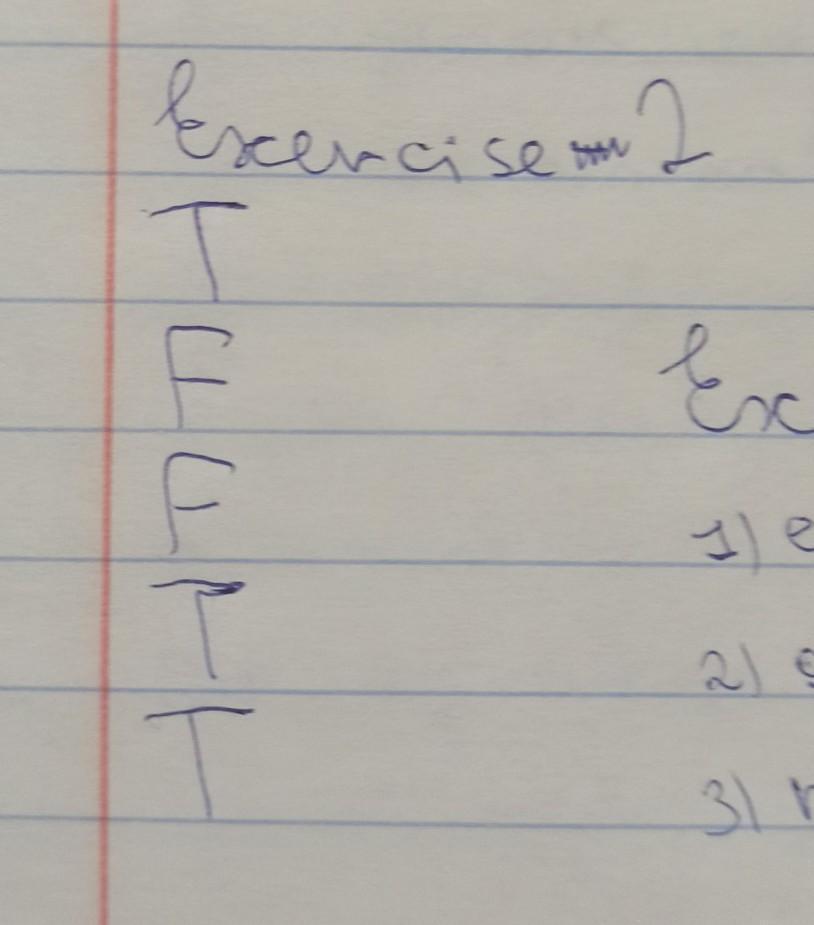 Exercise 2
T
F
F
T
T
Ex
1) e
2) s
3) r